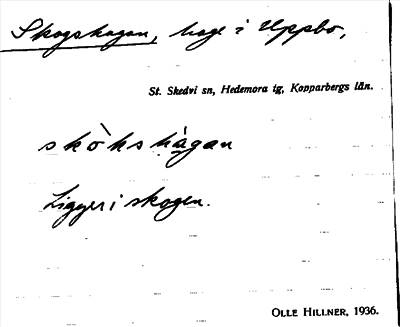 Skogshagan, hage i Uppbo,
St. Skedvi sn, Hedemora tg, Kopparbergs län.
skòkshàgan
Ligger i skogen.
OLLE HILLNER, 1936.